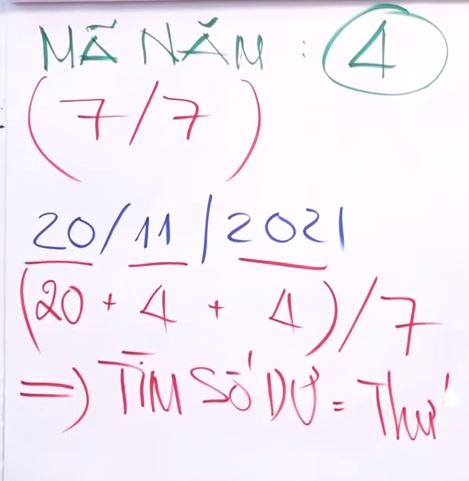 MÃ NĂM : 4
(7/7)
20/11/2021
(20 + 4 + 4)/7
=) TÌM SỐ DƯ = Thứ